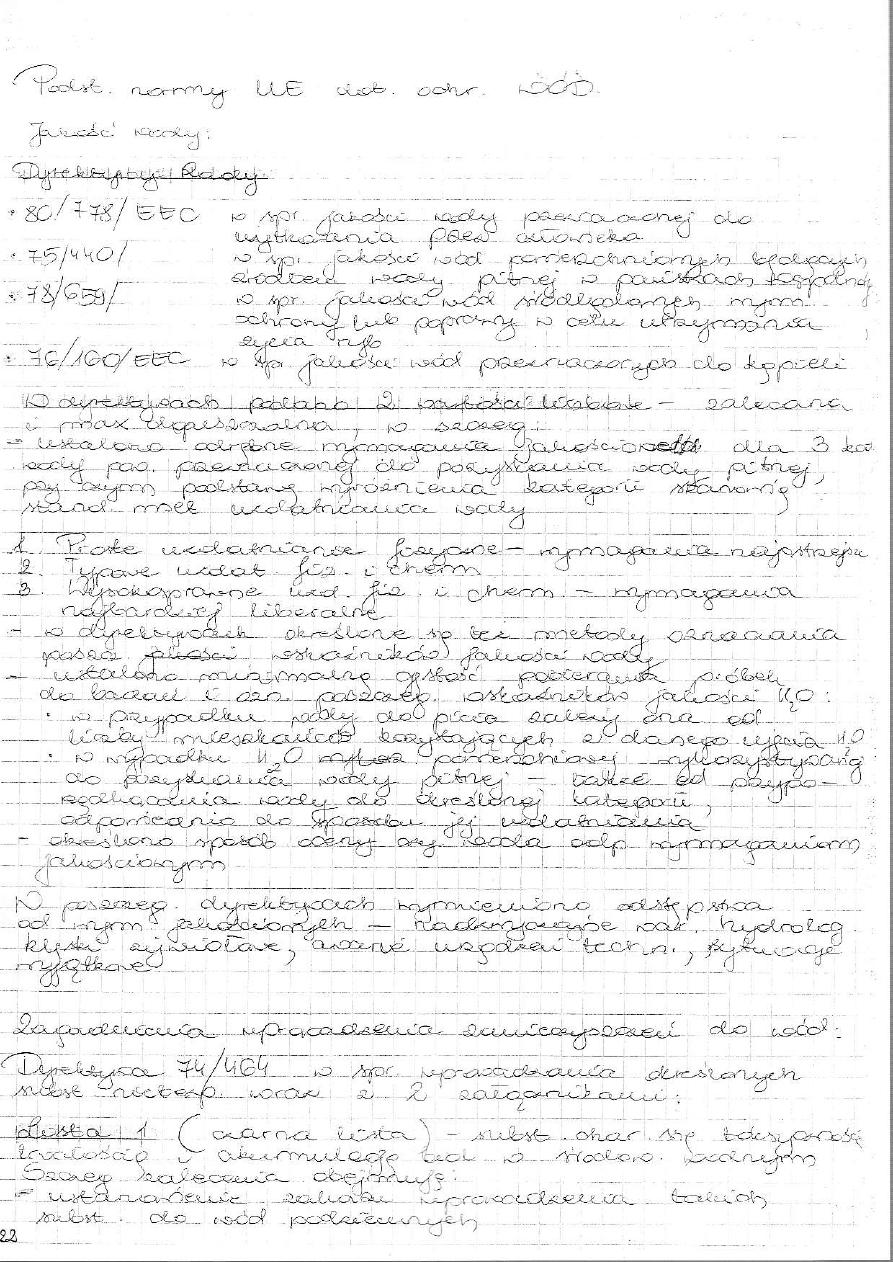 Podst. normy UE dot. ochr. WÓD.
Jakość wody:
Dyrektywy Rady
• 80/778/EEC w spr. jakości wody przeznaczonej do
użytkowania przez człowieka
• 75/440/ w spr. jakości wód powierzchniowych będących
źródłem wody pitnej w państwach
• 78/659/ w spr. jakości wód śródlądowych wym.
ochrony lub poprawy w celu utrzymania
życia ryb
• 76/160/EEC w spr. jakości wód przeznaczonych do kąpieli
W dyrektywach podano 2 wartości liczbowe – zalecana
i max dopuszczalna, w szczeg:
– ustalono odrębne wymagania jakościowe dla 3 kat.
wody pow. przeznaczonej do pozyskania wody pitnej,
przy czym podstawę wyróżnienia kategorii stanowią
stand. met. uzdatniania wody
1. Proste uzdatnianie fizyczne – wymagania najostrzejsze
2. Typowe uzdat. fiz. i chem
3. Wysokosprawne uzd. fiz. i chem – wymagania
najbardziej liberalne
– w dyrektywach określone są też metody oznaczania
poszcz. jakości wskaźników jakości wody
– ustalono minimalną częstość pobierania próbek
do badań i ozn. poszczeg. wskaźników jakości H2O:
• w przypadku wody do picia zależy ona od
liczby mieszkańców korzystających z danego ujęcia H2O
• w wypadku H2O powierzchniowej wykorzystywanej
do pozyskania wody pitnej – także od przypo-
rządkowania wody do określonej kategorii,
odpowiednio do sposobu jej uzdatniania
– określono sposób oceny czy woda odp. wymaganiom
jakościowym
W poszczeg. dyrektywach wymieniono odstępstwa
od wym. jakościowych – nadzwyczajne war. hydrolog.
klęski żywiołowe, awarie urządzeń techn., sytuacje
wyjątkowe
Zagadnienia wprowadzenia zanieczyszczeń do wód:
Dyrektywa 74/464 w spr. wprowadzania określonych
subst. niebezp. wraz z 2 załącznikami:
Lista 1 (czarna lista) – subst. char. się toksycznością
trwałością i akumulacją w środow. wodnym
Szczeg. zalecenia obejmują:
– ustanowienie zakazu wprowadzenia takich
subst. do wód podziemnych
22